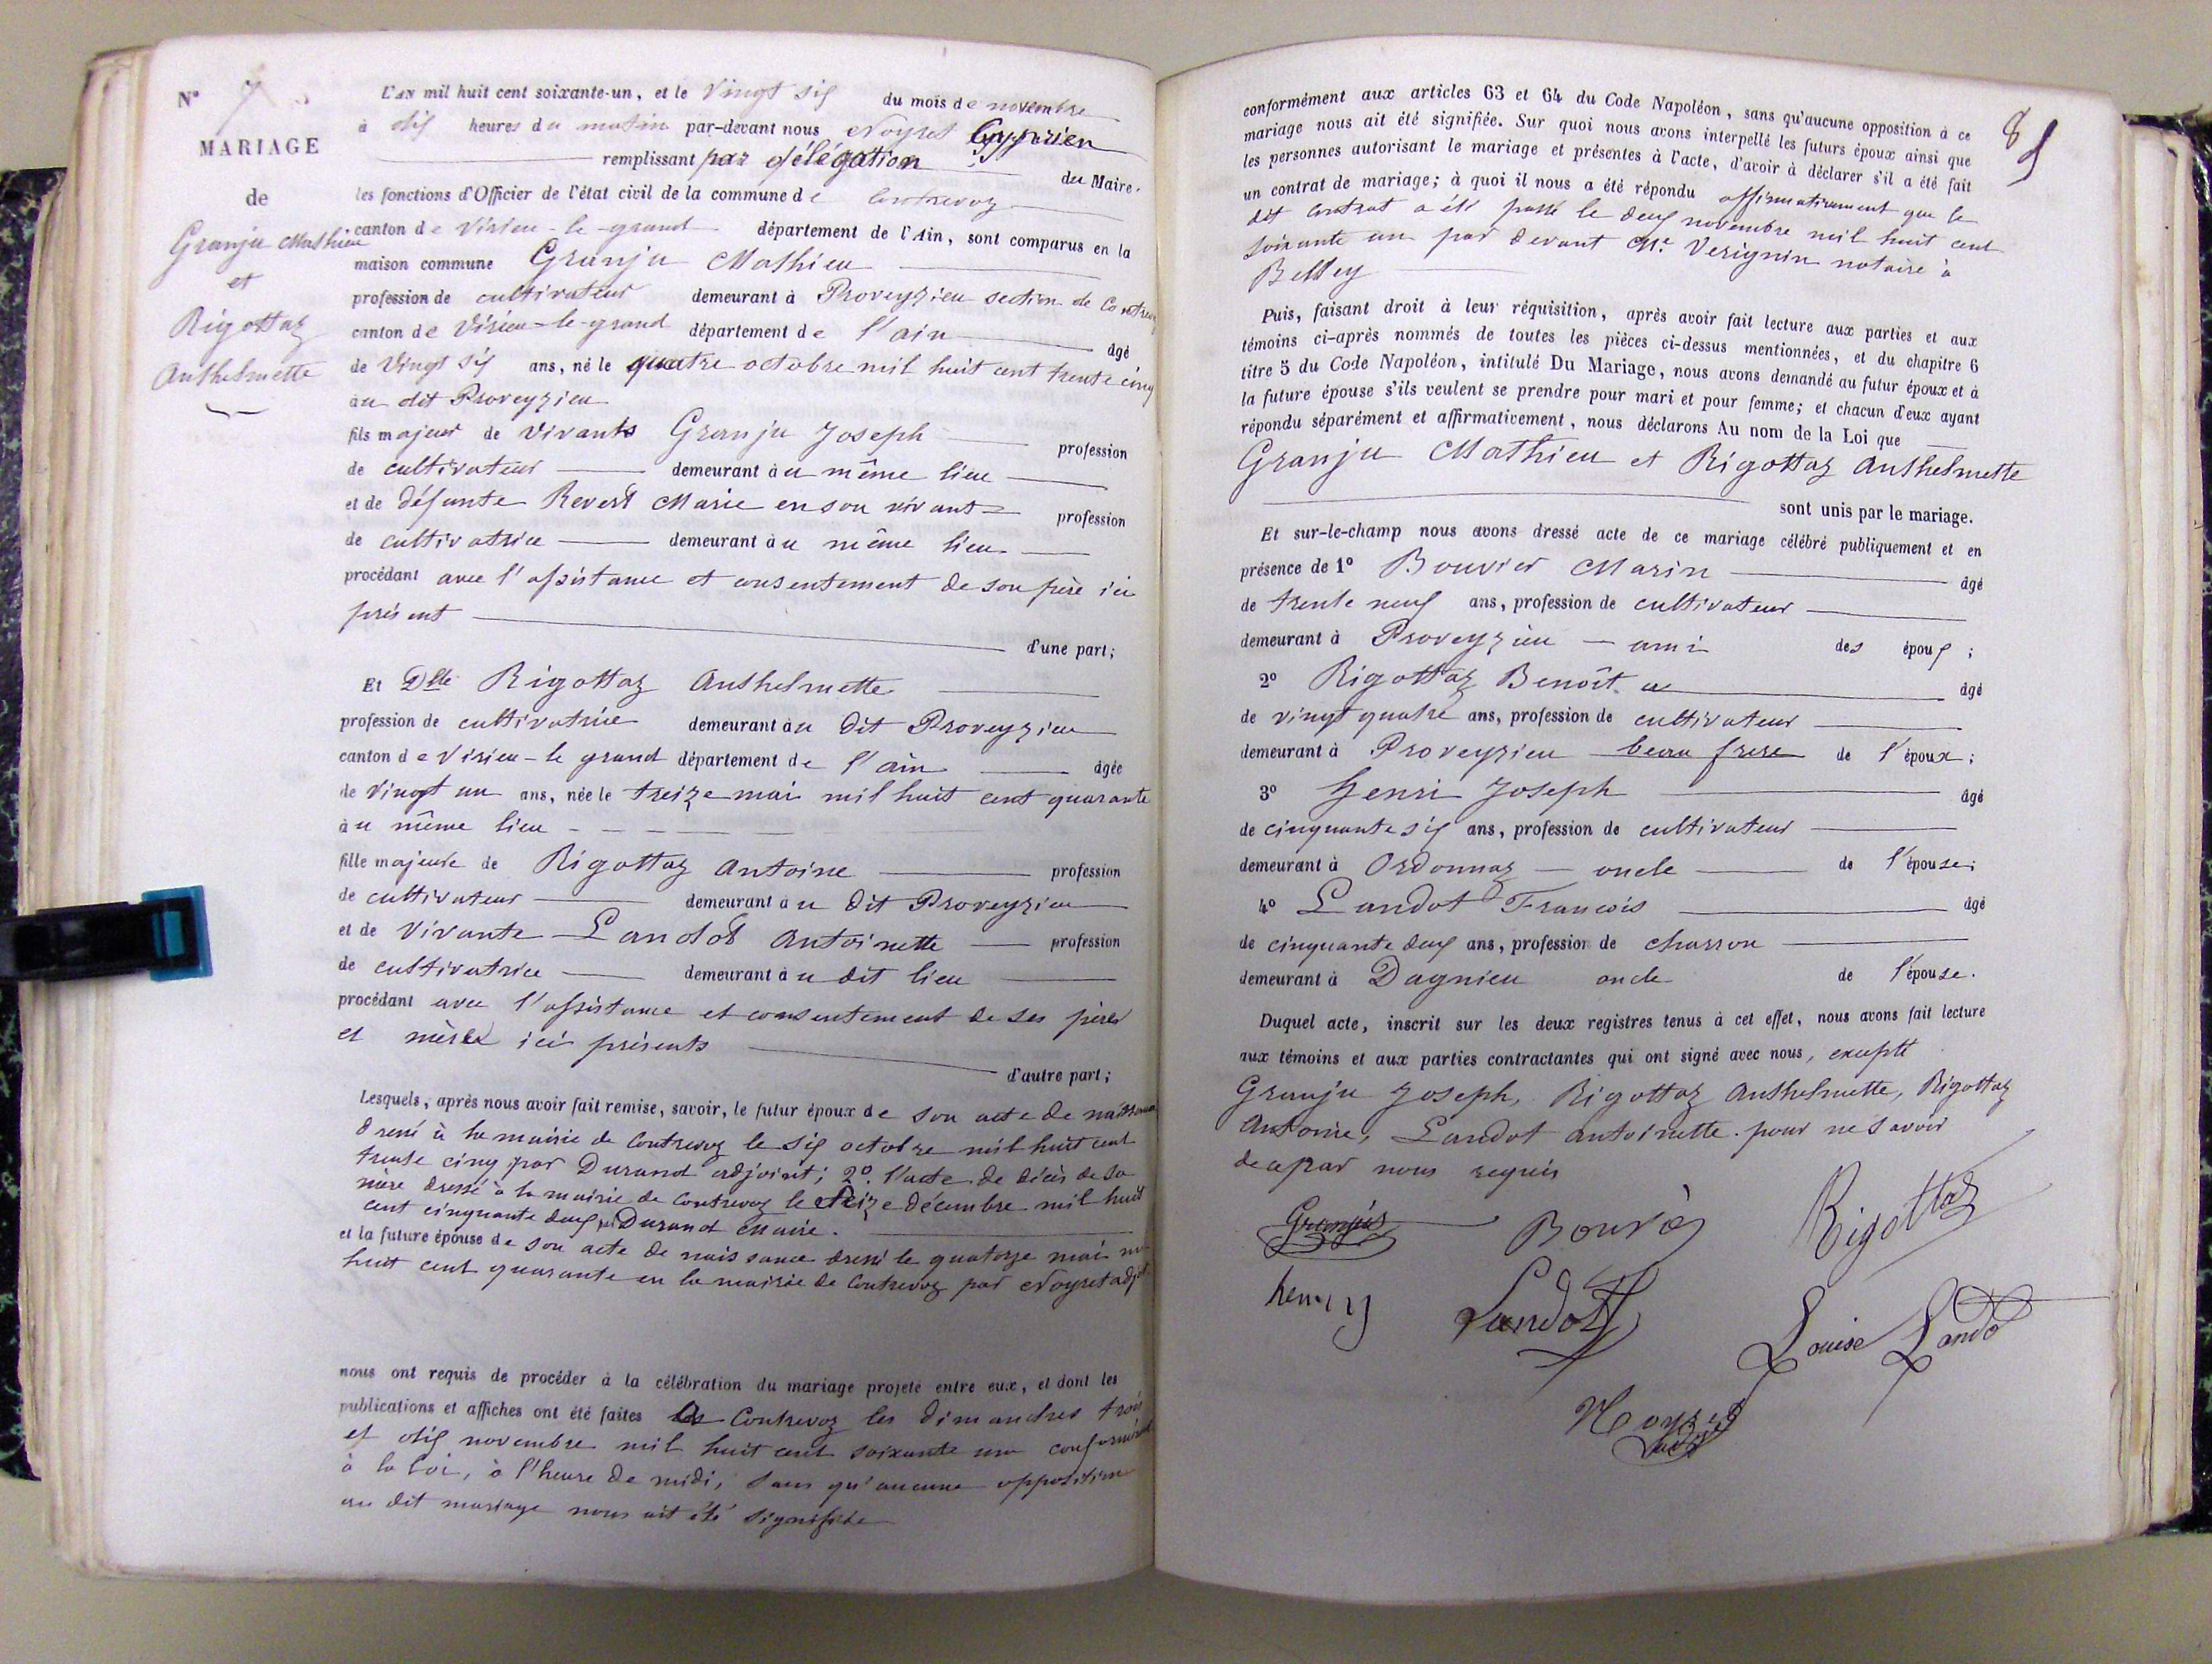 N° 7
MARIAGE
de
Granju Mathieu
et
Rigottaz
Anthelmette
L'AN mil huit cent soixante-un, et le vingt six du mois de novembre
à dix heures du matin par-devant nous Noyret Cyprien
remplissant par délégation du Maire.
les fonctions d'Officier de l'état civil de la commune de Contrevoz
canton de Virieu-le-grand département de l'Ain, sont comparus en la
maison commune Granju Mathieu
profession de cultivateur demeurant à Proveyzieu section de Contrevoz
canton de Virieu-le-grand département de l'ain âgé
de vingt six ans, né le quatre octobre mil huit cent trente cinq
au dit Proveyzieu
fils majeur de vivants Granju Joseph profession
de cultivateur demeurant au même lieu
et de défunte Revest Marie en son vivant profession
de cultivatrice demeurant au même lieu
procédant avec l'assistance et consentement de son père ici
présent
d'une part;
Et Dlle Rigottaz Anthelmette
profession de cultivatrice demeurant au dit Proveyzieu
canton de Virieu-le grand département de l'ain âgée
de vingt un ans, née le treize mai mil huit cent quarante
au même lieu
fille majeure de Rigottaz Antoine profession
de cultivateur demeurant au dit Proveyzieu
et de vivante Landot Antoinette profession
de cultivatrice demeurant au dit lieu
procédant avec l'assistance et consentement de ses pères
et mères ici présents
d'autre part;
Lesquels, après nous avoir fait remise, savoir, le futur époux de son acte de naissance
dressé à la mairie de Contrevoz le six octobre mil huit cent
trente cinq par Durand adjoint; 2° l'acte de décès de sa
mère dressé à la mairie de Contrevoz le treize décembre mil huit
cent cinquante deux par Durand Maire.
et la future épouse de son acte de naissance dressé le quatorze mai mil
huit cent quarante en la mairie de Contrevoz par Noyret adjt
nous ont requis de procéder à la célébration du mariage projeté entre eux, et dont les
publications et affiches ont été faites à Contrevoz les dimanches trois
et dix novembre mil huit cent soixante un conformément
à la loi, à l'heure de midi, sans qu'aucune opposition
au dit mariage nous ait été signifiée
8
conformément aux articles 63 et 64 du Code Napoléon, sans qu'aucune opposition à ce
mariage nous ait été signifiée. Sur quoi nous avons interpellé les futurs époux ainsi que
les personnes autorisant le mariage et présentes à l'acte, d'avoir à déclarer s'il a été fait
un contrat de mariage; à quoi il nous a été répondu affirmativement que le
dit contrat a été passé le deux novembre mil huit cent
soixante un par devant Me Verignin notaire à
Belley
Puis, faisant droit à leur réquisition, après avoir fait lecture aux parties et aux
témoins ci-après nommés de toutes les pièces ci-dessus mentionnées, et du chapitre 6
titre 5 du Code Napoléon, intitulé Du Mariage, nous avons demandé au futur époux et à
la future épouse s'ils veulent se prendre pour mari et pour femme; et chacun d'eux ayant
répondu séparément et affirmativement, nous déclarons Au nom de la Loi que
Granju Mathieu et Rigottaz Anthelmette
sont unis par le mariage.
Et sur-le-champ nous avons dressé acte de ce mariage célébré publiquement et en
présence de 1° Bouvier Marin âgé
de trente neuf ans, profession de cultivateur
demeurant à Proveyzieu ami des époux;
2° Rigottaz Benoît âgé
de vingt quatre ans, profession de cultivateur
demeurant à Proveyzieu beau frere de l'époux;
3° Henri Joseph âgé
de cinquante six ans, profession de cultivateur
demeurant à Ordonnaz oncle de l'épouse;
4° Landot Francois âgé
de cinquante deux ans, profession de charron
demeurant à Dagnieu oncle de l'épouse.
Duquel acte, inscrit sur les deux registres tenus à cet effet, nous avons fait lecture
aux témoins et aux parties contractantes qui ont signé avec nous, excepté
Granju Joseph, Rigottaz Anthelmette, Rigottaz
Antoine, Landot Antoinette pour ne savoir
de ce par nous requis
Granju Bouvier Rigottaz
henry Landot Louise Landot
Noyret